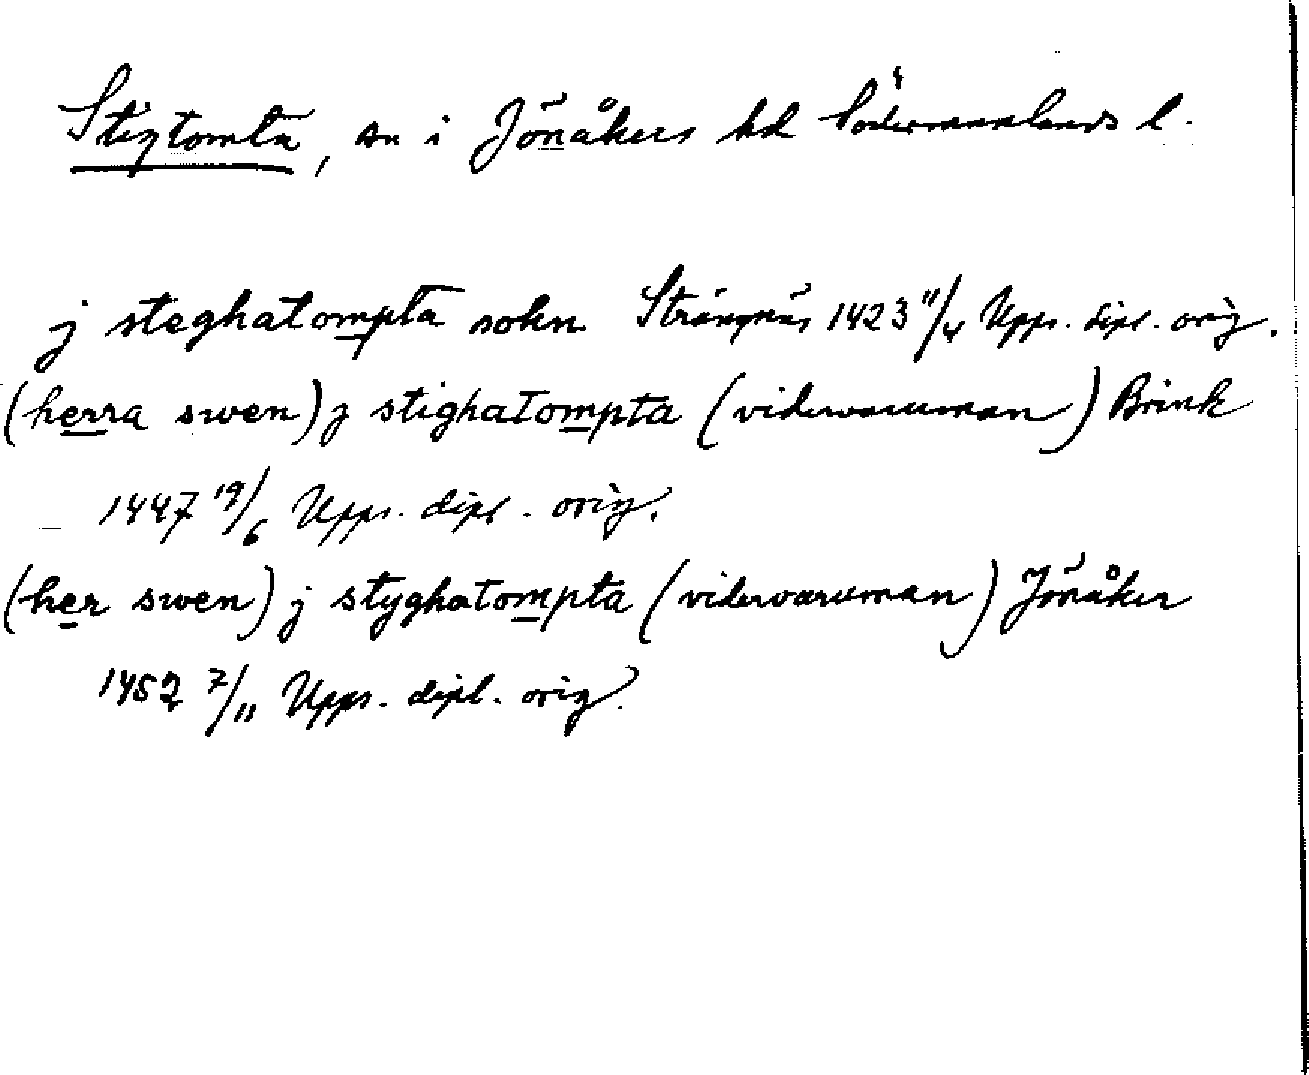 Stigtomta, sn i Jönåkers hd Södermanlands l.
j steghatompta sokn Strängnäs 1423 11/4 Upps. dipl. orig.
(herra swen) j stighatompta (vidervaruman) Brink
1447 19/6 Upps. dipl. orig.
(her swen) j styghatompta (vidervaruman) Jönåker
1452 7/11 Upps. dipl. orig.